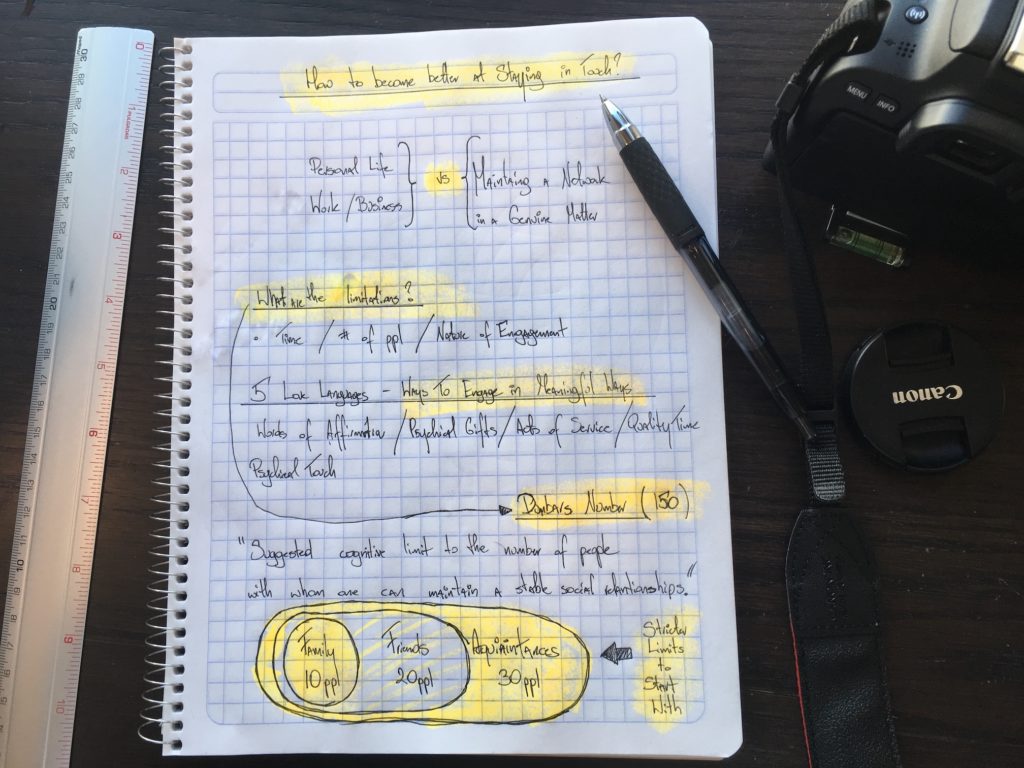 How to become better at Staying in Touch?
Personal Life
Work / Business
vs
Maintaing a Network
in a Genuine Matter
What are the limitations?
• Time / # of ppl / Nature of Engagement
5 Love Languages - Ways To Engage in Meaningful Ways
Words of Affirmation / Psychical Gifts / Acts of Service / Quality Time
Psychical Touch
Dunbars Number (150)
"Suggested cognitive limit to the number of people
with whom one can maintain a stable social relantionships."
Family
10 ppl
Friends
20 ppl
Acquiaintances
30 ppl
Stricter
Limits
to
Start
With
MENU
INFO
Canon